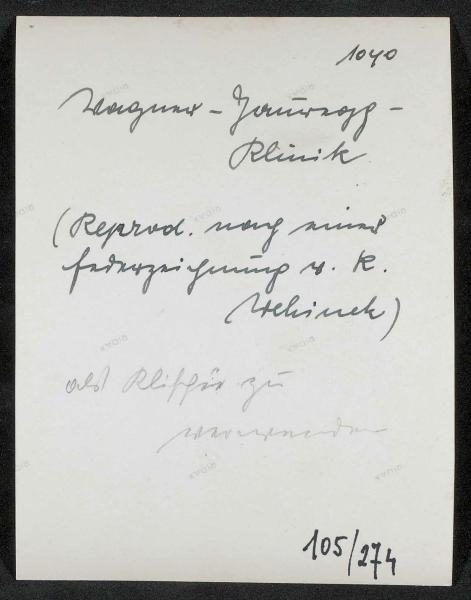 1040
Wagner-Jauregg-
Klinik
(Reprod. nach einer
Federzeichnung v. K.
Wehinek)
als Klischée zu
verwenden
105/274